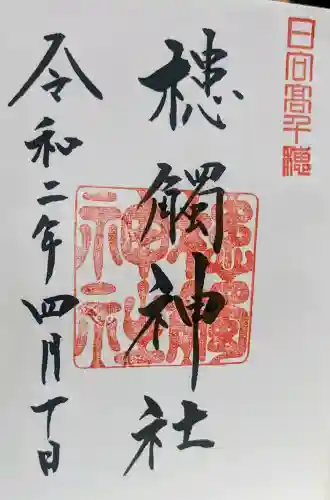 日向高千穂
槵觸神社
令和二年四月十日